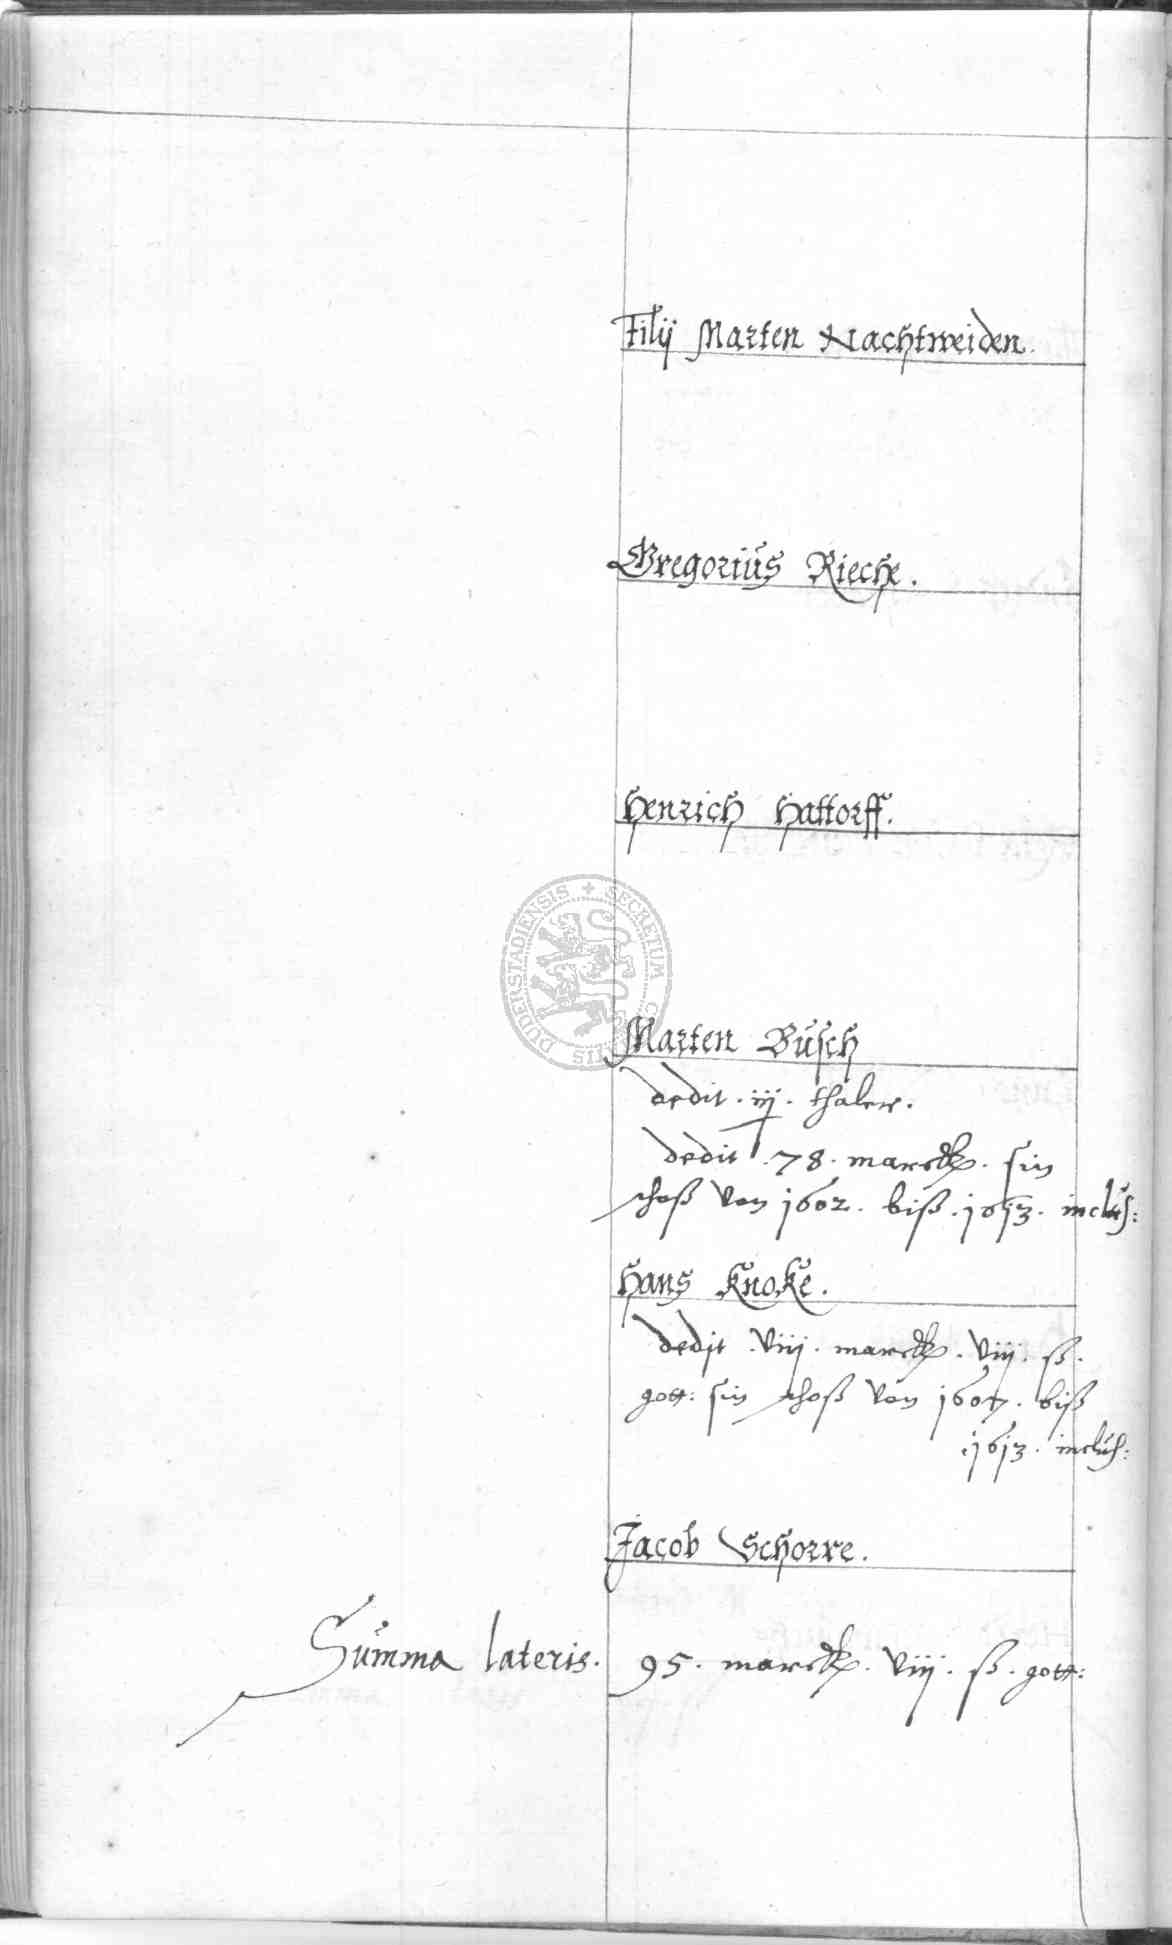 Filij Marten Nachtweiden.
Gregorius Rieche.
Henrich Hattorff.
SECRETUM DUDERSTADIENSIS
Marten Busch
dedit . iij . thaler.
dedit . 78 . marck . sin
schoß von 1602 . biß . 1613 . inclus:
Hans Knoke.
dedit . viij . marck . viij . ß .
gott: sin schoß von 1607 . biß
. 1613 . inclus:
Jacob Schorre.
Summa lateris . 95 . marck . viij . ß . gott: